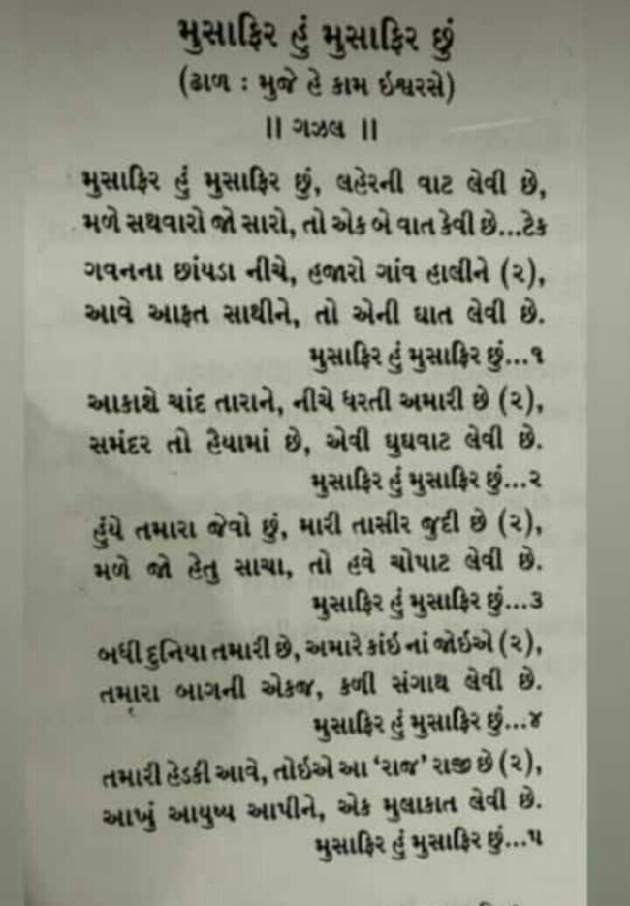 મુસાફિર હું મુસાફિર છું
(ઢાળ : મુજે હે કામ ઇશ્વરસે)
|| ગઝલ ||
મુસાફિર હું મુસાફિર છું, લહેરની વાટ લેવી છે,
મળે સથવારો જો સારો, તો એક બે વાત કેવી છે...ટેક
ગવનના છાંયડા નીચે, હજારો ગાંવ હાલીને (૨),
આવે આફત સાથીને, તો એની ઘાત લેવી છે.
મુસાફિર હું મુસાફિર છું...૧
આકાશે ચાંદ તારાને, નીચે ધરતી અમારી છે (૨),
સમંદર તો હૈયામાં છે, એવી ઘુઘવાટ લેવી છે.
મુસાફિર હું મુસાફિર છું...૨
હુંયે તમારા જેવો છું, મારી તાસીર જુદી છે (૨),
મળે જો હેતુ સાચા, તો હવે ચોપાટ લેવી છે.
મુસાફિર હું મુસાફિર છું...૩
બધી દુનિયા તમારી છે, અમારે કાંઇ નાં જોઇએ (૨),
તમારા બાગની એકજ, કળી સંગાથ લેવી છે.
મુસાફિર હું મુસાફિર છું...૪
તમારી હેડકી આવે, તોઇએ આ ‘રાજ’ રાજી છે (૨),
આખું આયુષ્ય આપીને, એક મુલાકાત લેવી છે.
મુસાફિર હું મુસાફિર છું...૫